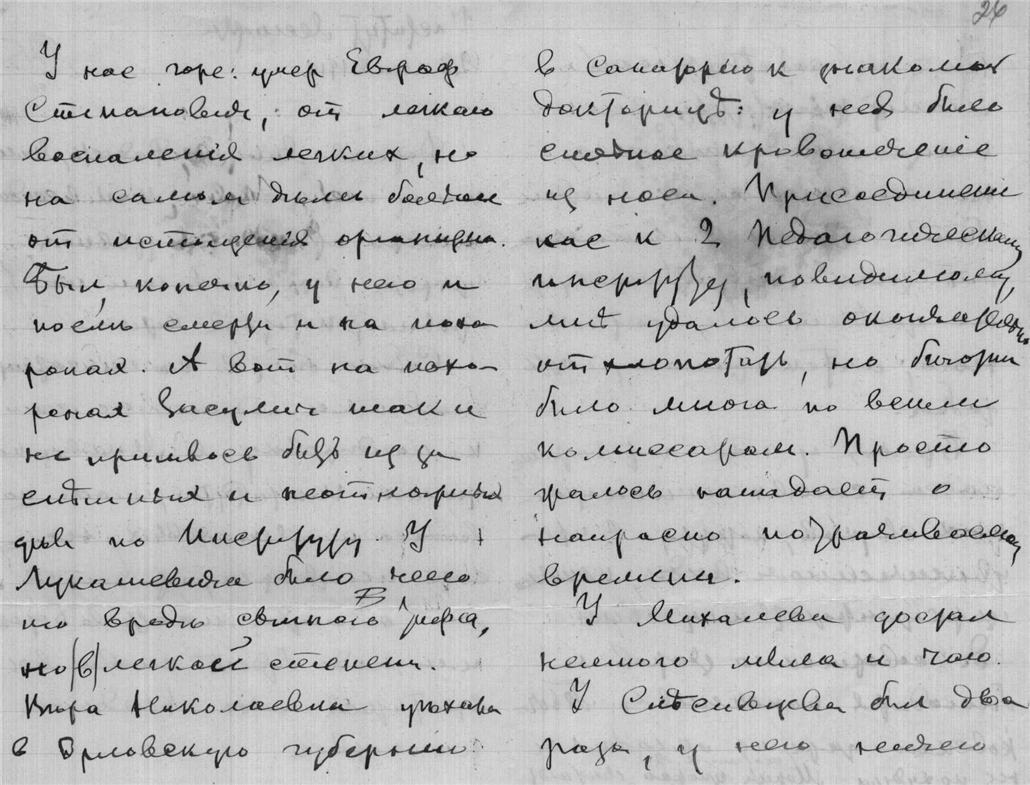 26
У нас горе: умер Евграф
Степанович, от легкаго
воспаленія легких, но
на самом дѣлѣ болѣе
от истощенія организма.
Был, конечно, у него и
послѣ смерти и на похо
ронах. А вот на похо-
ронах Засулич таки
не пришлось быть из за
спѣшных и неотложных
дѣл по Институту. У
Лукашевича было нечто
в родѣ сыпного тифа,
но в легкой степени.
Вѣра Николаевна уѣхала
в Орловскую губернию
в санаторію к знакомой
докторшѣ: у нея было
сильное кровотеченіе
из носа. Присоединение
нас к 2 Педагогическому
институту, повидимому,
мнѣ удалось окончательно
отхлопотать, но
было много по всем
комиссарам. Просто
жалость нападает о
напрасно потрачиваемом
времени.
У Михалева достал
немного мыла и чаю.
У был два
раза, у него ничего